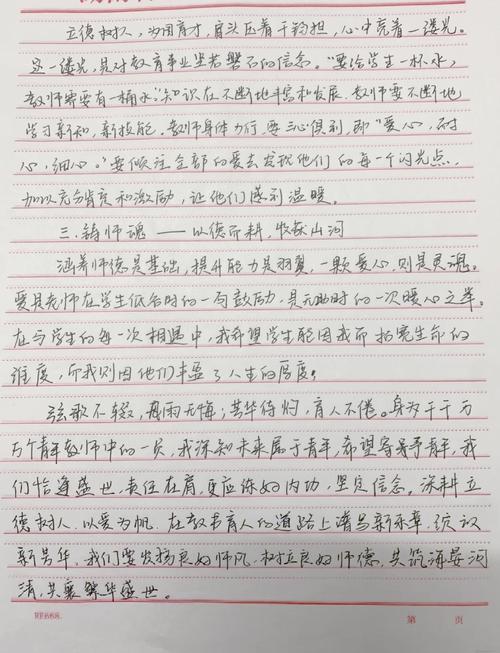 立德树人，为国育才，肩头压着千钧担，心中亮着一缕光。
这一缕光，是对教育事业坚若磐石的信念。“要给学生一杯水，
教师需要有一桶水”知识在不断地丰富和发展，教师要不断地
学习新知，新技能。教师身体力行，要三心俱到，即“爱心，耐
心，细心。”要倾注全部的爱去发现他们的每一个闪光点，
加以充分肯定和激励，让他们感到温暖。
三、铸师魂 —— 以德而耕，收获山河
涵养师德是基础，提升能力是羽翼，一颗爱心，则是灵魂。
爱是老师在学生低谷时的一句鼓励，是无助时的一次暖心之举。
在与学生的每一次相遇中，我希望学生能因我而拓宽生命的
维度，而我则因他们丰盈了人生的厚度。
弦歌不辍，风雨无悔；芳华待灼，育人不倦。身为千千万
万个青年教师中的一员，我深知未来属于青年，希望寄予青年，我
们恰逢盛世，责任在肩，更应练好内功，坚定信念。深耕立
德树人，以爱为帆，在教书育人的道路上谱写新乐章，续议
新芳华，我们要发扬良好师风，树立良好师德，共筑海晏河
清，共襄繁华盛世。
第 页